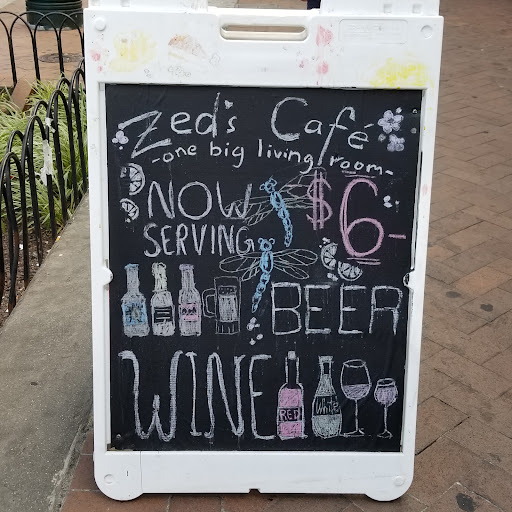 Zed's Café
-one big living room-
NOW $6-
SERVING
BEER
WINE
RED White